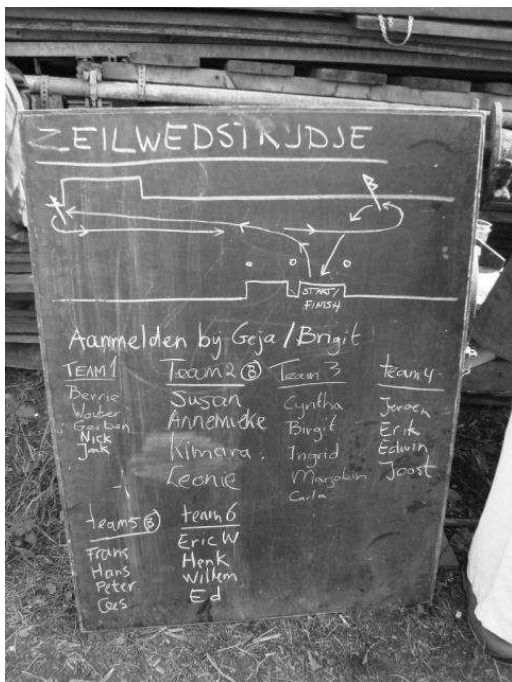 ZEILWEDSTRIJDJE
START/
FINISH
Aanmelden bij Geja / Brigit
TEAM 1
Berrie
Wouter
Gerben
Nick
Jack
Team 2 B
Susan
Annemieke
Kimara
Leonie
Team 3
Cyntha
Birgit
Ingrid
Marjolein
Carla
team 4
Jeroen
Erik
Edwin
Joost
team 5 B
Frans
Hans
Peter
Cees
team 6
Eric W
Henk
Willem
Ed